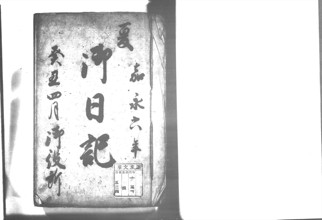 嘉永六年
夏
御日記
癸丑四月
御役所